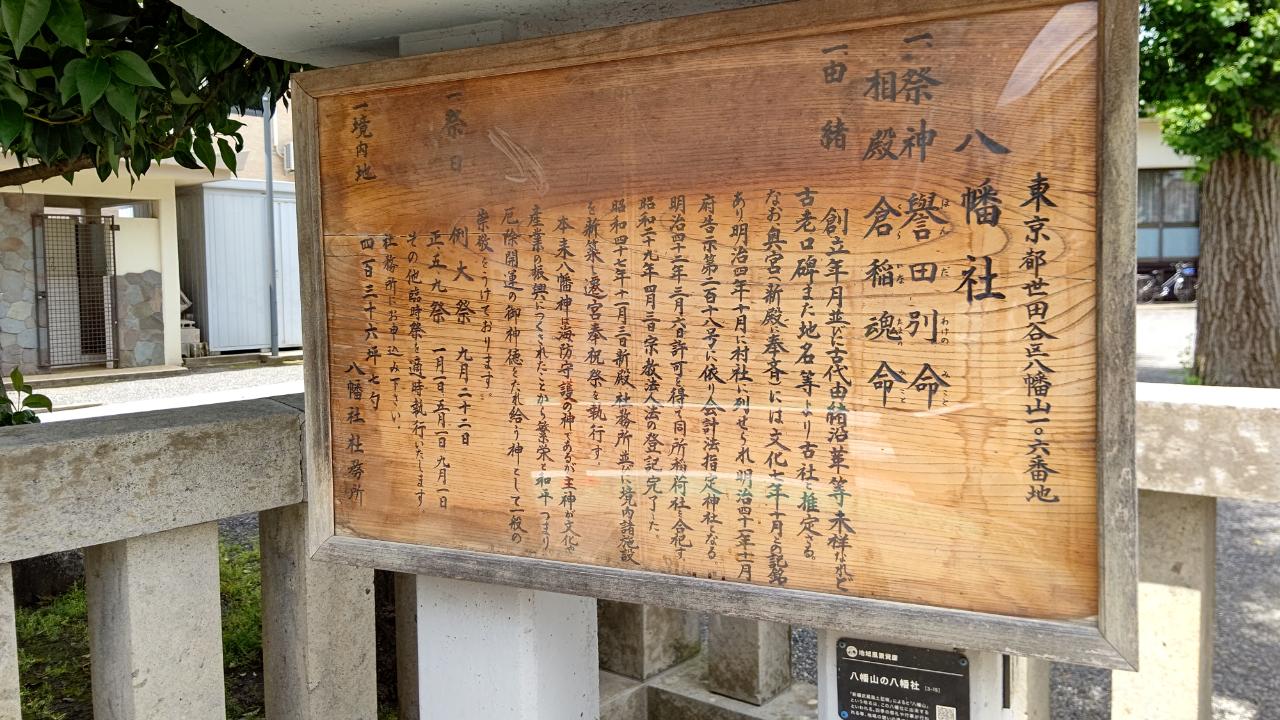 東京都世田谷区八幡山一ノ六番地
八幡社
一、祭神 譽田別命
ほんだわけのみこと
相殿 倉稲魂命
うかのみたまのみこと
一由緒
創立年月並に古代由緒沿革等未祥なれど
古老口碑また地名等より古社と推定さる。
なお奥宮(新殿に奉斉)には文化七年十月との記銘
あり明治四年十月に村社に列せられ明治四十一年十一月
府告示第二百十八号に依り会計法指定神社になる。
明治四十二年三月六日許可を得て同所稲荷社を合祀す
昭和二十九年四月三日宗教法人法の登記完了した。
昭和四十七年十二月三日新殿、社務所並に境内諸施設
を新築し遷宮奉祝祭を執行す。
本来八幡神は海防守護の神であるが主神が文化や
産業の振興につくされたことから繁栄と和平つまり
厄除開運の御神徳をたれ給う神として一般の
崇敬をうけております。
一祭日
例大祭 九月二十二日
正五九祭 一月一日 五月一日 九月一日
その他臨時祭も適時執行いたします。
社務所にお申込み下さい。
一境内地
四百三十六坪七勺
八幡社 社務所
地域風景資産
八幡山の八幡社 [3-15]